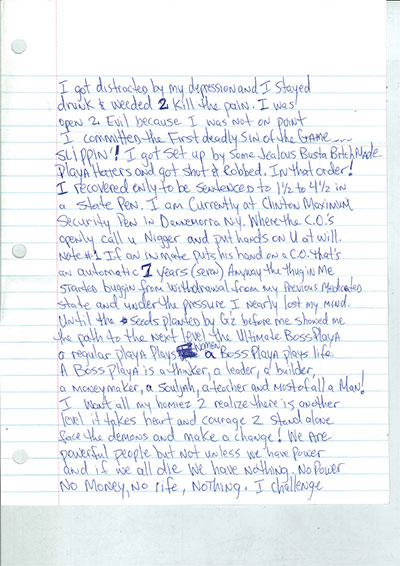 I got distracted by my depression and I stayed
drunk & weeded 2 kill the pain. I was
open 2 Evil because I was not on point
I committed the First deadly Sin of the GAME....
SLIPPIN'! I got set up by some Jealous Busta Bitch Made
Playa Haters and got shot & Robbed. In that order!
I recovered only to be sentenced to 1½ to 4½ in
a state Pen. I am Currently at Clinton Maximum
Security Pen in Dannemorra N.Y. Where the C.O.'s
openly call u Nigger and put hands on U at will.
Note #1 If an inmate puts his hand on a C.O. that's
an automatic 7 years (seven) Anyway the thug in Me
started buggin from withdrawal from my Previous Medicated
state and under the pressure I nearly lost my mind.
Until the seeds planted by G'z before me showed me
the path to the next level the Ultimate Boss Playa
a regular playa plays women a Boss Playa plays life
A Boss Playa is a thinker, a leader, a builder,
a moneymaker, a souljah, a teacher and most of all a Man!
I want all my homiez 2 realize there is another
level it takes heart and courage 2 stand alone
face the demons and make a change! We are
powerful people but not unless we have power
and if we all die we have nothing. No Power
No Money, No life, Nothing. I challenge